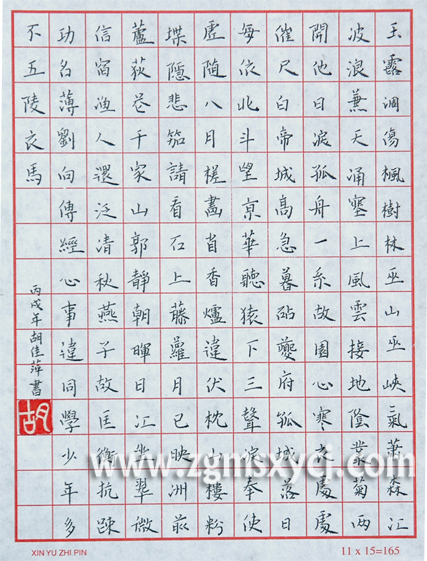 玉露凋傷楓樹林巫山巫峽氣蕭森江
波浪兼天涌塞上風雲接地陰叢菊兩
開他日淚孤舟一系故園心寒衣處處
催尺白帝城高急暮砧夔府孤城落日
每依北斗望京華聽猿下三聲淚奉使
虛隨八月槎畫省香爐違伏枕山樓粉
堞隱悲笳請看石上藤蘿月已映洲前
蘆荻花千家山郭靜朝暉日江坐翠微
信宿漁人還泛清秋燕子故匡衡抗疎
功名薄劉向傳經心事違同學少年多
不五陵衣馬
丙戌年胡佳萍書
胡
www.zgmsxycj.com
XIN YU ZHI PIN
11 x 15=165